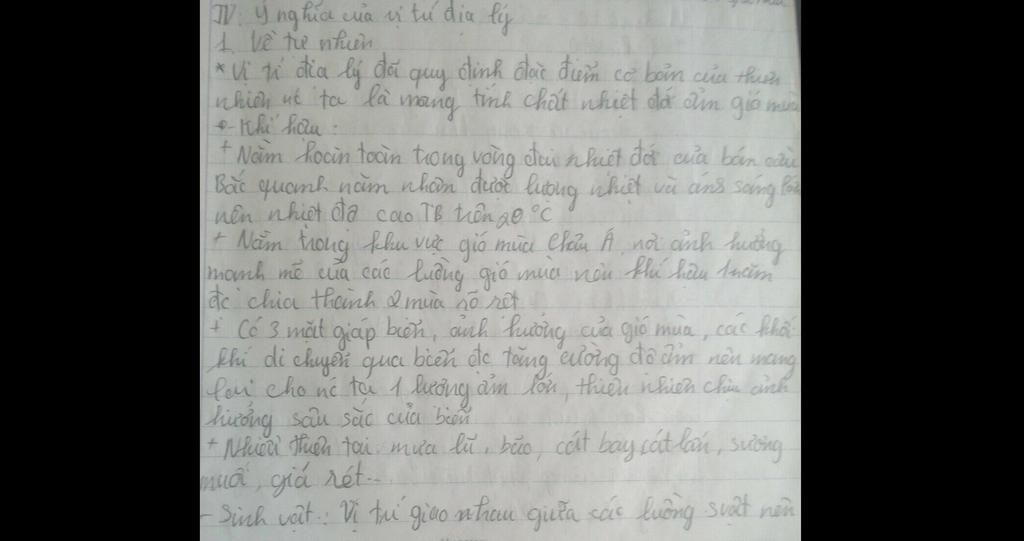 IV. Ý nghĩa của vị trí địa lý
1. Về tự nhiên
* Vị trí địa lý đã quy định đặc điểm cơ bản của thiên
nhiên nc ta là mang tính chất nhiệt đới ẩm gió mùa
- Khí hậu:
+ Nằm hoàn toàn trong vòng đai nhiệt đới của bán cầu
Bắc quanh năm nhận được lượng nhiệt và ánh sáng lớn
nên nhiệt độ cao TB trên 20 °C
+ Nằm trong khu vực gió mùa Châu Á nơi ảnh hưởng
mạnh mẽ của các luồng gió mùa nên khí hậu 1 năm
đc chia thành 2 mùa rõ rệt
+ Có 3 mặt giáp biển, ảnh hưởng của gió mùa, các khối
khí di chuyển qua biển đc tăng cường độ ẩm nên mang
lại cho nc ta 1 lượng ẩm lớn, thiên nhiên chịu ảnh
hưởng sâu sắc của biển
+ Nhiều thiên tai: mưa lũ, bão, cát bay cát lấn, sương
muối, giá rét...
- Sinh vật: Vị trí giao nhau giữa các luồng svật nên